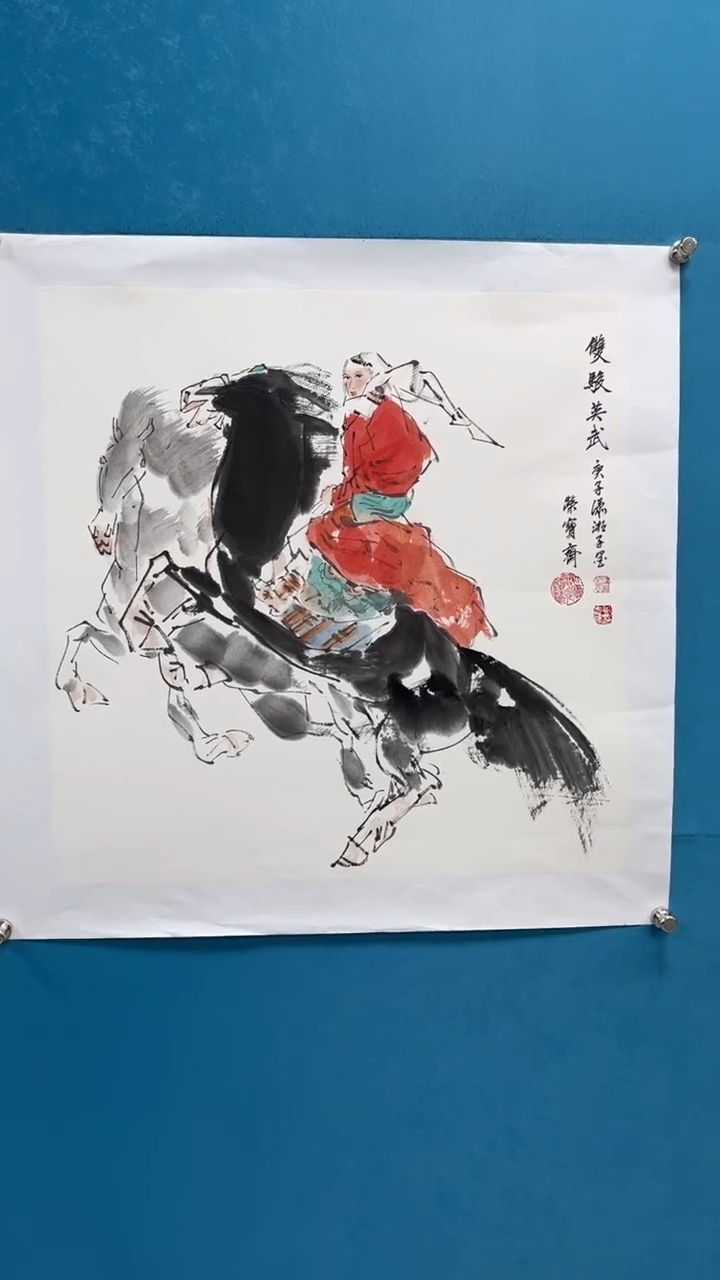 雙駿英武
庚子瀟湘子墨
榮寶齋